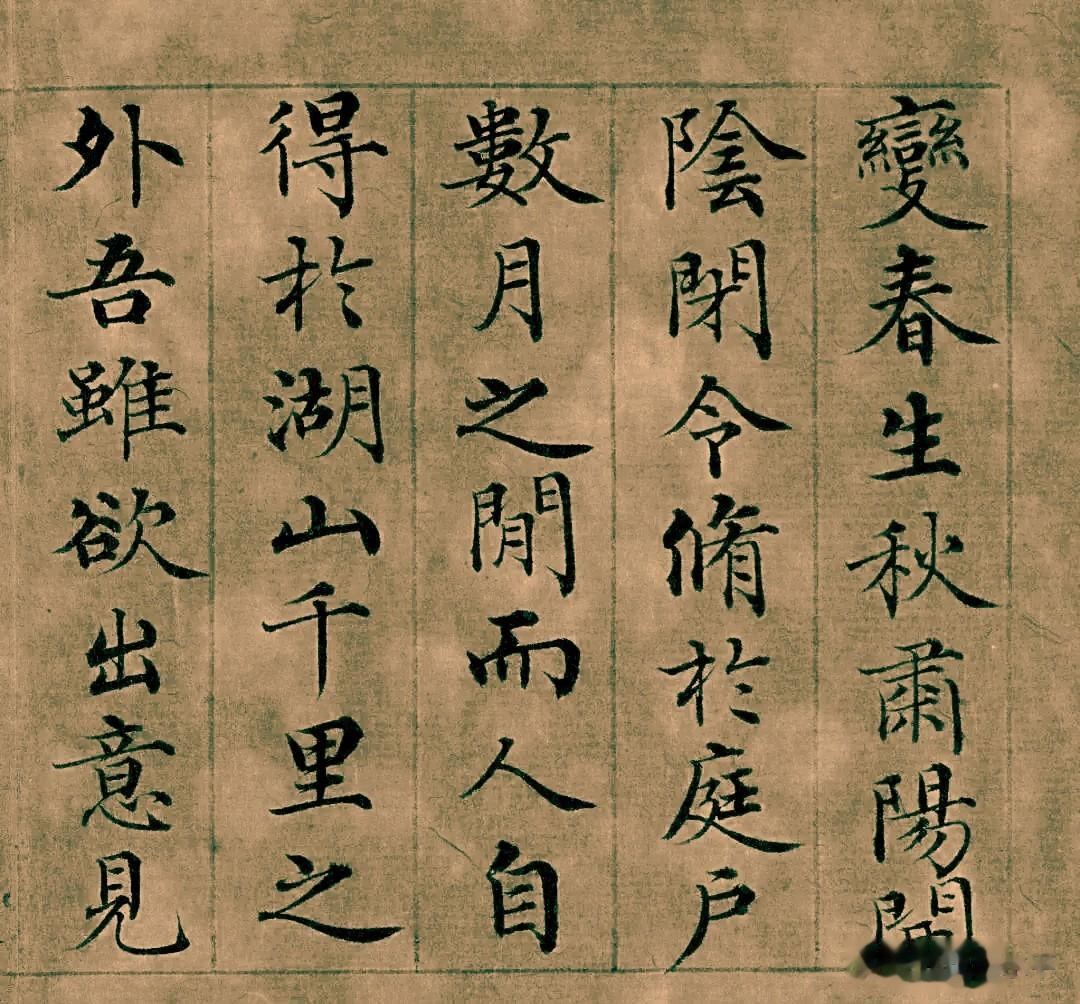 變春生秋肅陽開
陰閉令脩於庭戶
數月之閒而人自
得於湖山千里之
外吾雖欲出意見